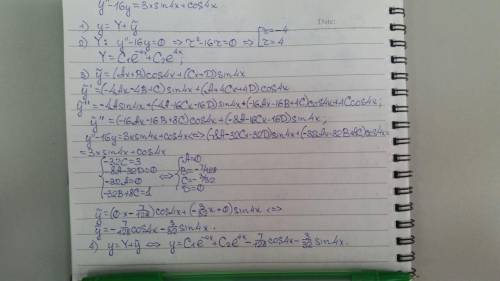 y''-16y=3xsin4x+cos4x
Date:
1) y=Y+ỹ
2) Y: y''-16y=0 ⇒ r²-16r=0 ⇒ [r=-4
r=4
Y=C₁e⁻⁴ˣ+C₂e⁴ˣ;
3) ỹ=(Ax+B)cos4x+(Cx+D)sin4x
ỹ'=(-4Ax-4B+C)sin4x+(A+4Cx+4D)cos4x
ỹ''=-4Asin4x+(-4A-16Cx-16D)sin4x+(-16Ax-16B+4C)cos4x+4Ccos4x;
ỹ''=(-16Ax-16B+8C)cos4x+(-8A-16Cx-16D)sin4x;
y''-16y=3xsin4x+cos4x ⇔ (-8A-32Cx-32D)sin4x+(-32Ax-32B+8C)cos4x=
=3xsin4x+cos4x
{-32C=3
-8A-32D=0
-32A=0
-32B+8C=1
⇔ {A=0
B=-7/128
C=-3/32
D=0
ỹ=(0·x-7/128)cos4x+(-3/32x+0)sin4x ⇔
ỹ=-7/128cos4x-3/32sin4x.
4) y=Y+ỹ ⇔ y=C₁e⁻⁴ˣ+C₂e⁴ˣ-7/128cos4x-3/32sin4x.